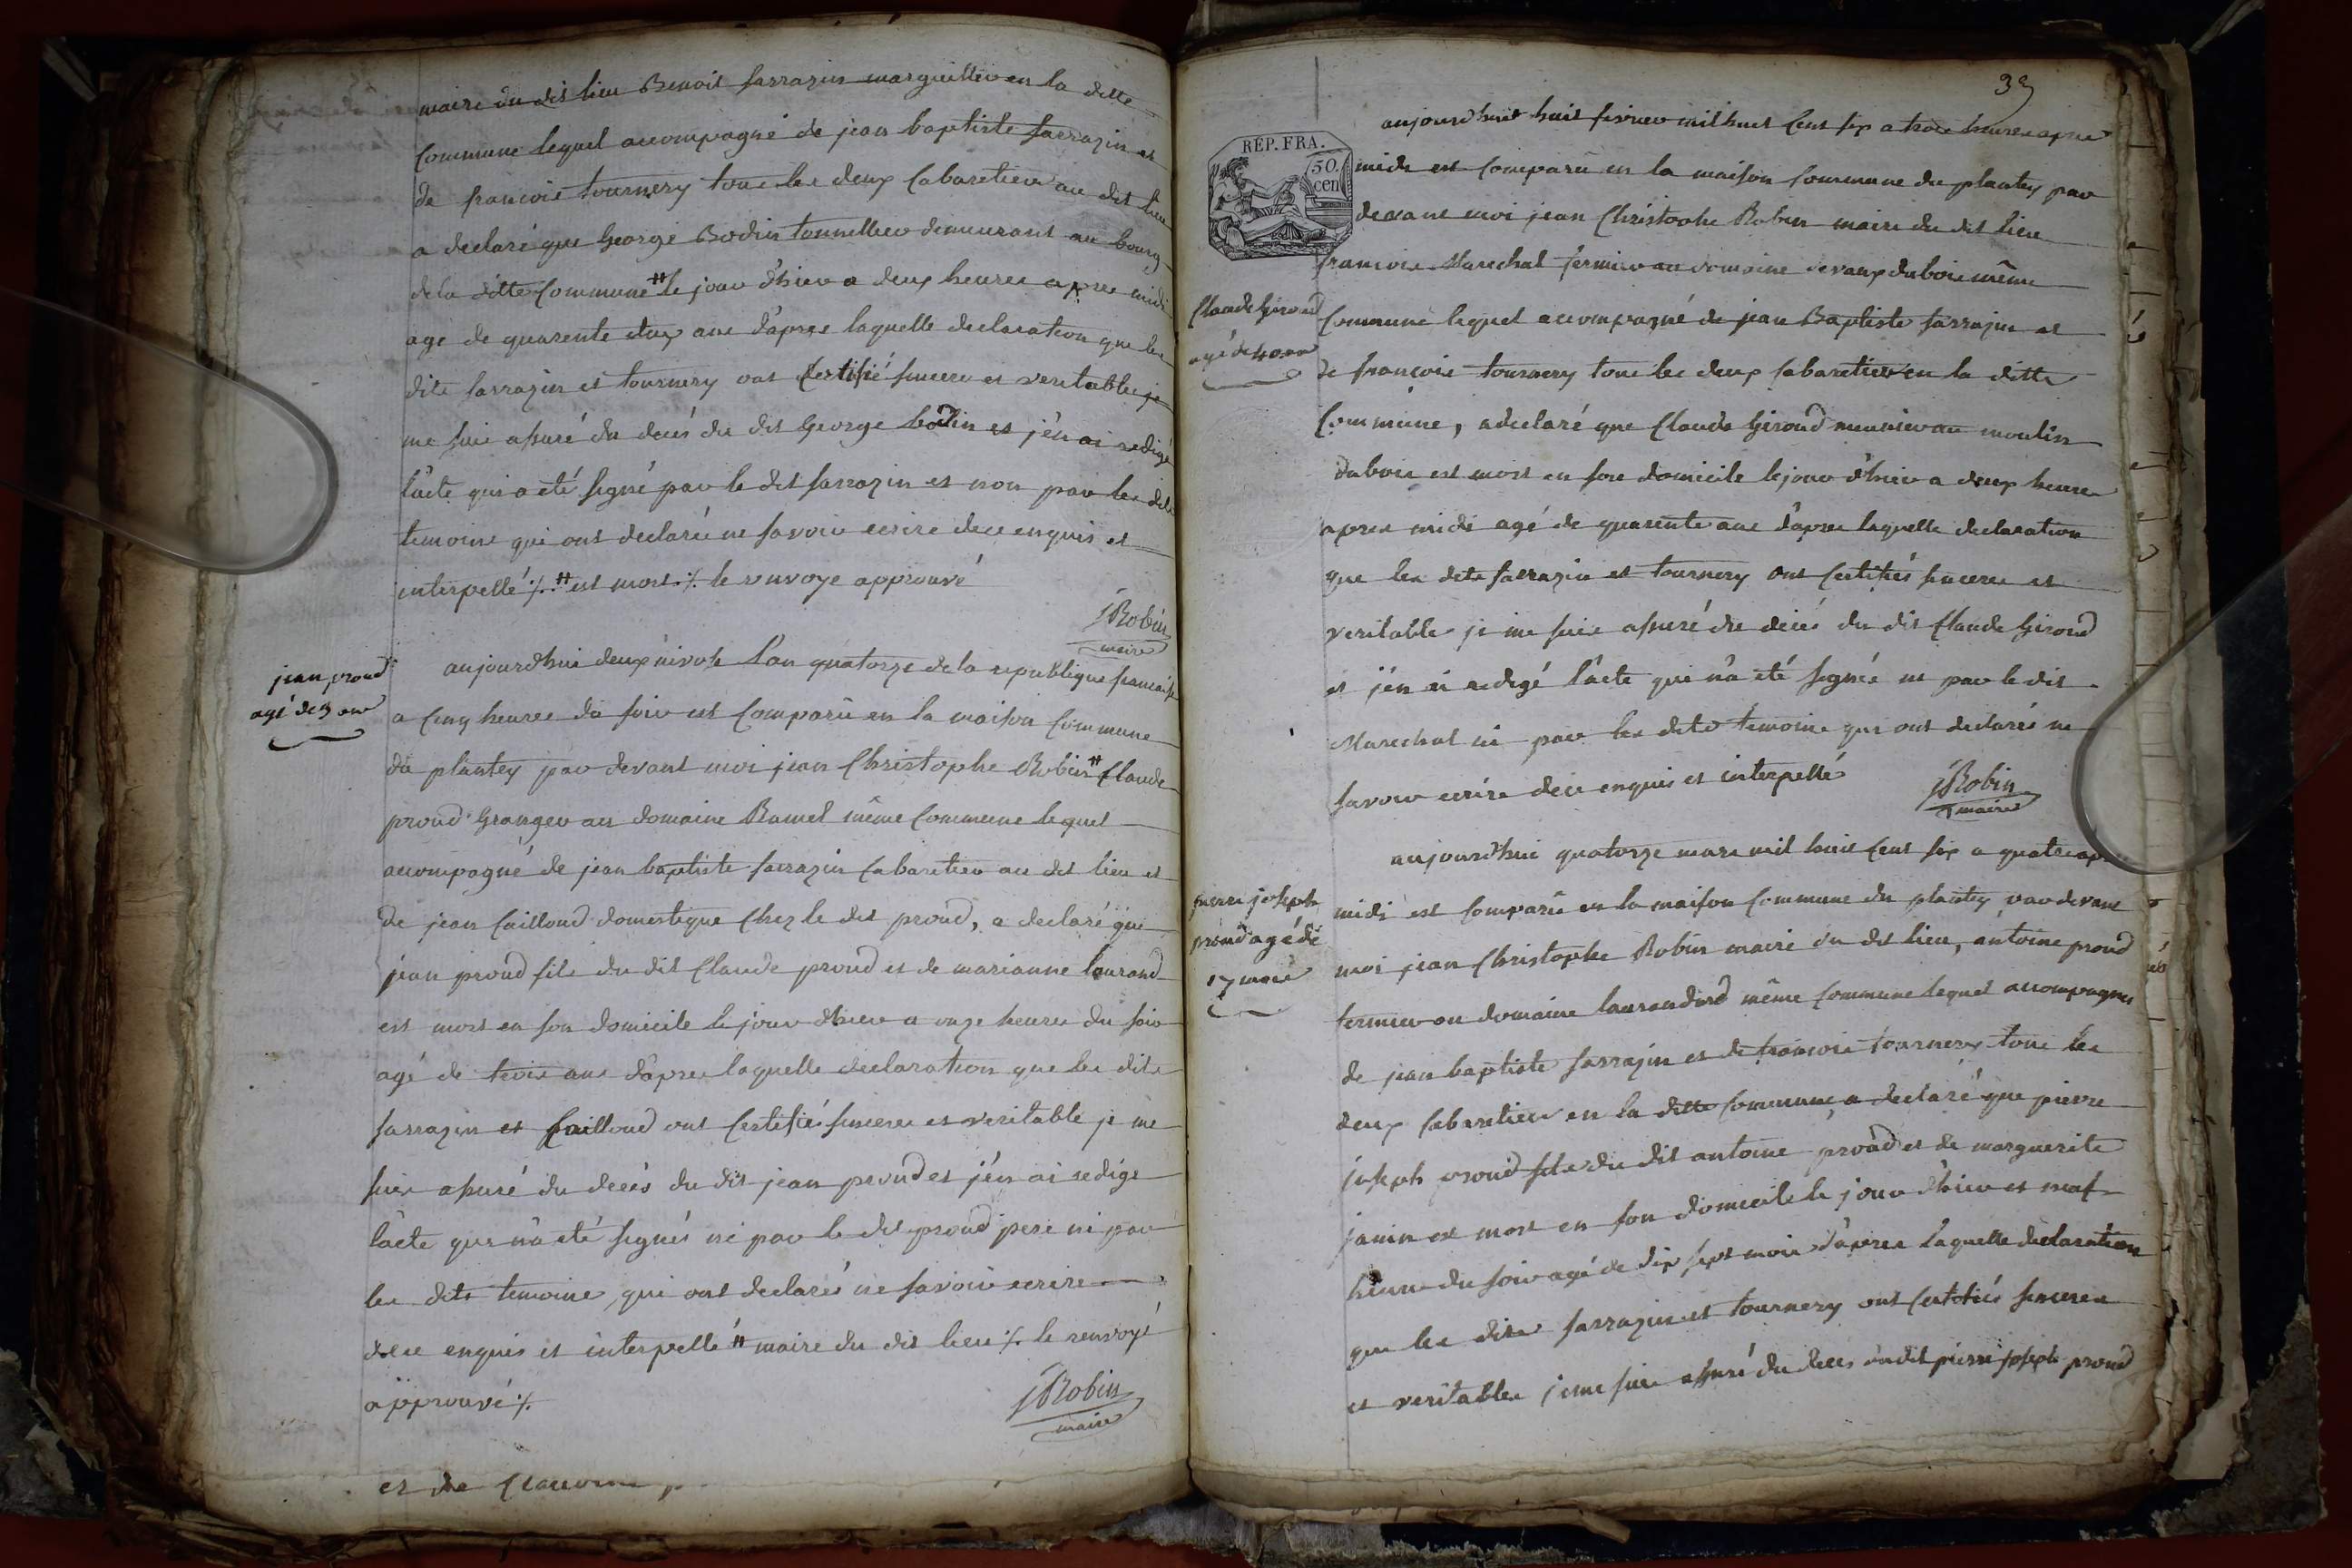 maire du dit lieu Benoit sarrazin marguillier en la ditte
Commune lequel acompagné de jean baptiste sarrazin et
de francois tournery tous les deux Cabaretiers au dit lieu
a declaré que George Bodin tonnellier demeurant au bourg
de la ditte Commune # le jour d'hier a deux heures apres midi
age de quarente deux ans d'apres laquelle declaration que les
dits sarrazin et tournery ont Certifié sincere et veritable je
me suis assuré du decés du dit George bodin et j'en ai redigé
l'acte qui a été signé par le dit sarrazin et non par les dits
temoins qui ont declaré ne savoir ecrire de ce enquis et
interpellé ./. # est mort ./. le renvoye approuvé
JRobin
maire
jean proud
agé de 3 ans
aujourd'hui deux nivose l'an quatorze de la republique francaise
a Cinq heures du soir est Comparu en la maison Commune
du plantey par devant moi jean Christophe Robin # Claude
proud Granger au domaine Ramel même Commune lequel
acompagné de jean baptiste sarrazin Cabaretier au dit lieu et
de jean Cailloud domestique Chez le dit proud, a declaré que
jean proud fils du dit Claude proud et de marianne lourand
est mort en son domicile le jour d'hier a onze heures du soir
agé de trois ans d'apres laquelle declaration que les dits
sarrazin et Cailloud ont Certifié sinceres et veritable je me
suis assuré du decés du dit jean proud et j'en ai redigé
l'acte qui n'a été signés ni par le dit proud pere ni par
les dits temoins, qui ont declarés ne savoir ecrire
de ce enquis et interpellé # maire du dit lieu ./. le renvoyé
approuvé ./.
JRobin
maire
et de
39
RÉP. FRA.
50.
cen
aujourd'huit huit fevrier mil huit Cent six a trois heures apres
midi est Comparu en la maison Commune du plantey par
devant moi jean Christophe Robin maire du dit lieu
francois Marechal fermier au domaine de vaux dubois même
Claude Giroud
agé de 40 ans
Commune lequel acompagné de jean Baptiste sarrazin et
de francois tournery tous les deux Cabaretiers en la ditte
Commune, a declaré que Claude Giroud meunier au moulin
dubois est mort en son domicile le jour d'hier a deux heures
apres midi agé de quarente ans d'apres laquelle declaration
que les dits sarrazin et tournery ont Certifiés sinceres et
veritable je me suis assuré du decés du dit Claude Giroud
et j'en ai redigé l'acte qui n'a été signée ni par le dit
Marechal ni par les dits temoins qui ont declarés ne
savoir ecrire de ce enquis et interpellé
JRobin
maire
aujourd'hui quatorze mars mil huit Cent six a quatre
pierre joseph
proud agé de
17 mois
midi est Comparu en la maison Commune du plantey par devant
moi jean Christophe Robin maire du dit lieu, antoine proud
fermier au domaine même Commune lequel acompagné
de jean baptiste sarrazin et de francois tournery tous les
deux Cabaretiers en la ditte Commune, a declaré que pierre
joseph proud fils du dit antoine proud et de marguerite
janin est mort en son domicile le jour d'hier et
heure du soir agé de dix sept mois d'apres laquelle declaration
que les dits sarrazin et tournery ont Certifiés sinceres
et veritables je me suis assuré du deces du dit pierre joseph proud